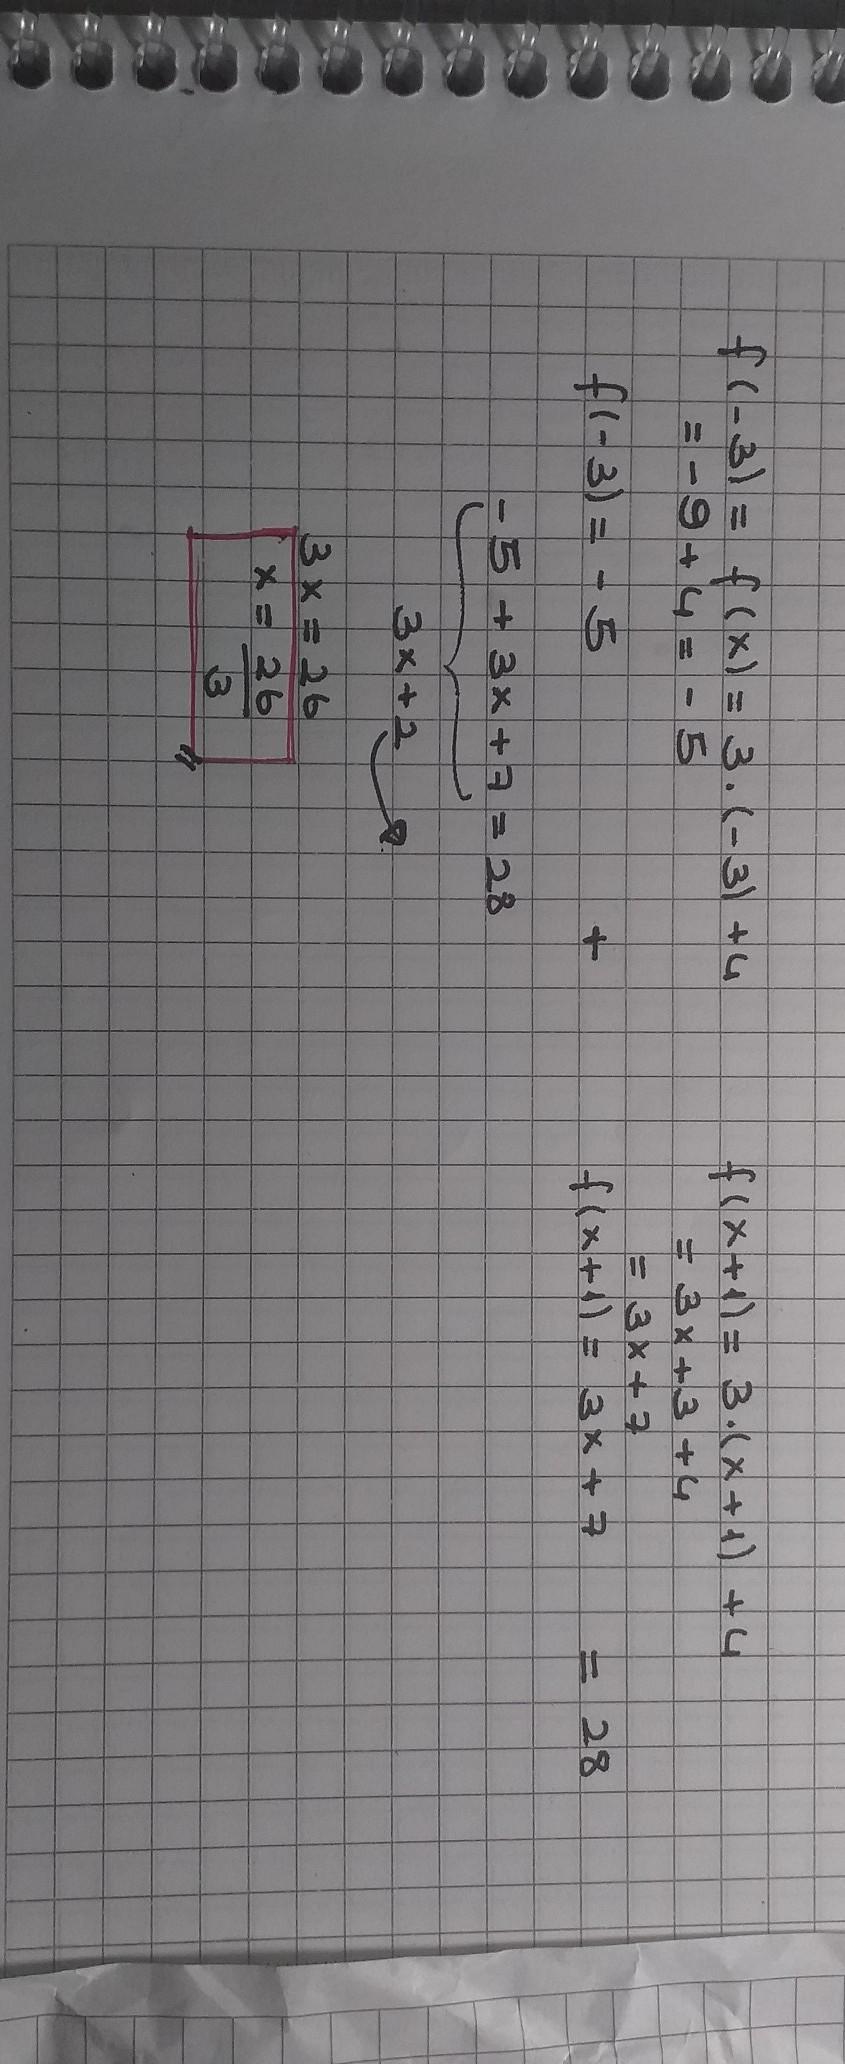 f(-3) = f(x) = 3.(-3) + 4
= -9 + 4 = -5
f(x+1) = 3.(x+1) + 4
= 3x + 3 + 4
= 3x + 7
f(-3) = -5 + f(x+1) = 3x + 7 = 28
-5 + 3x + 7 = 28
3x + 2
3x = 26
x = 26/3